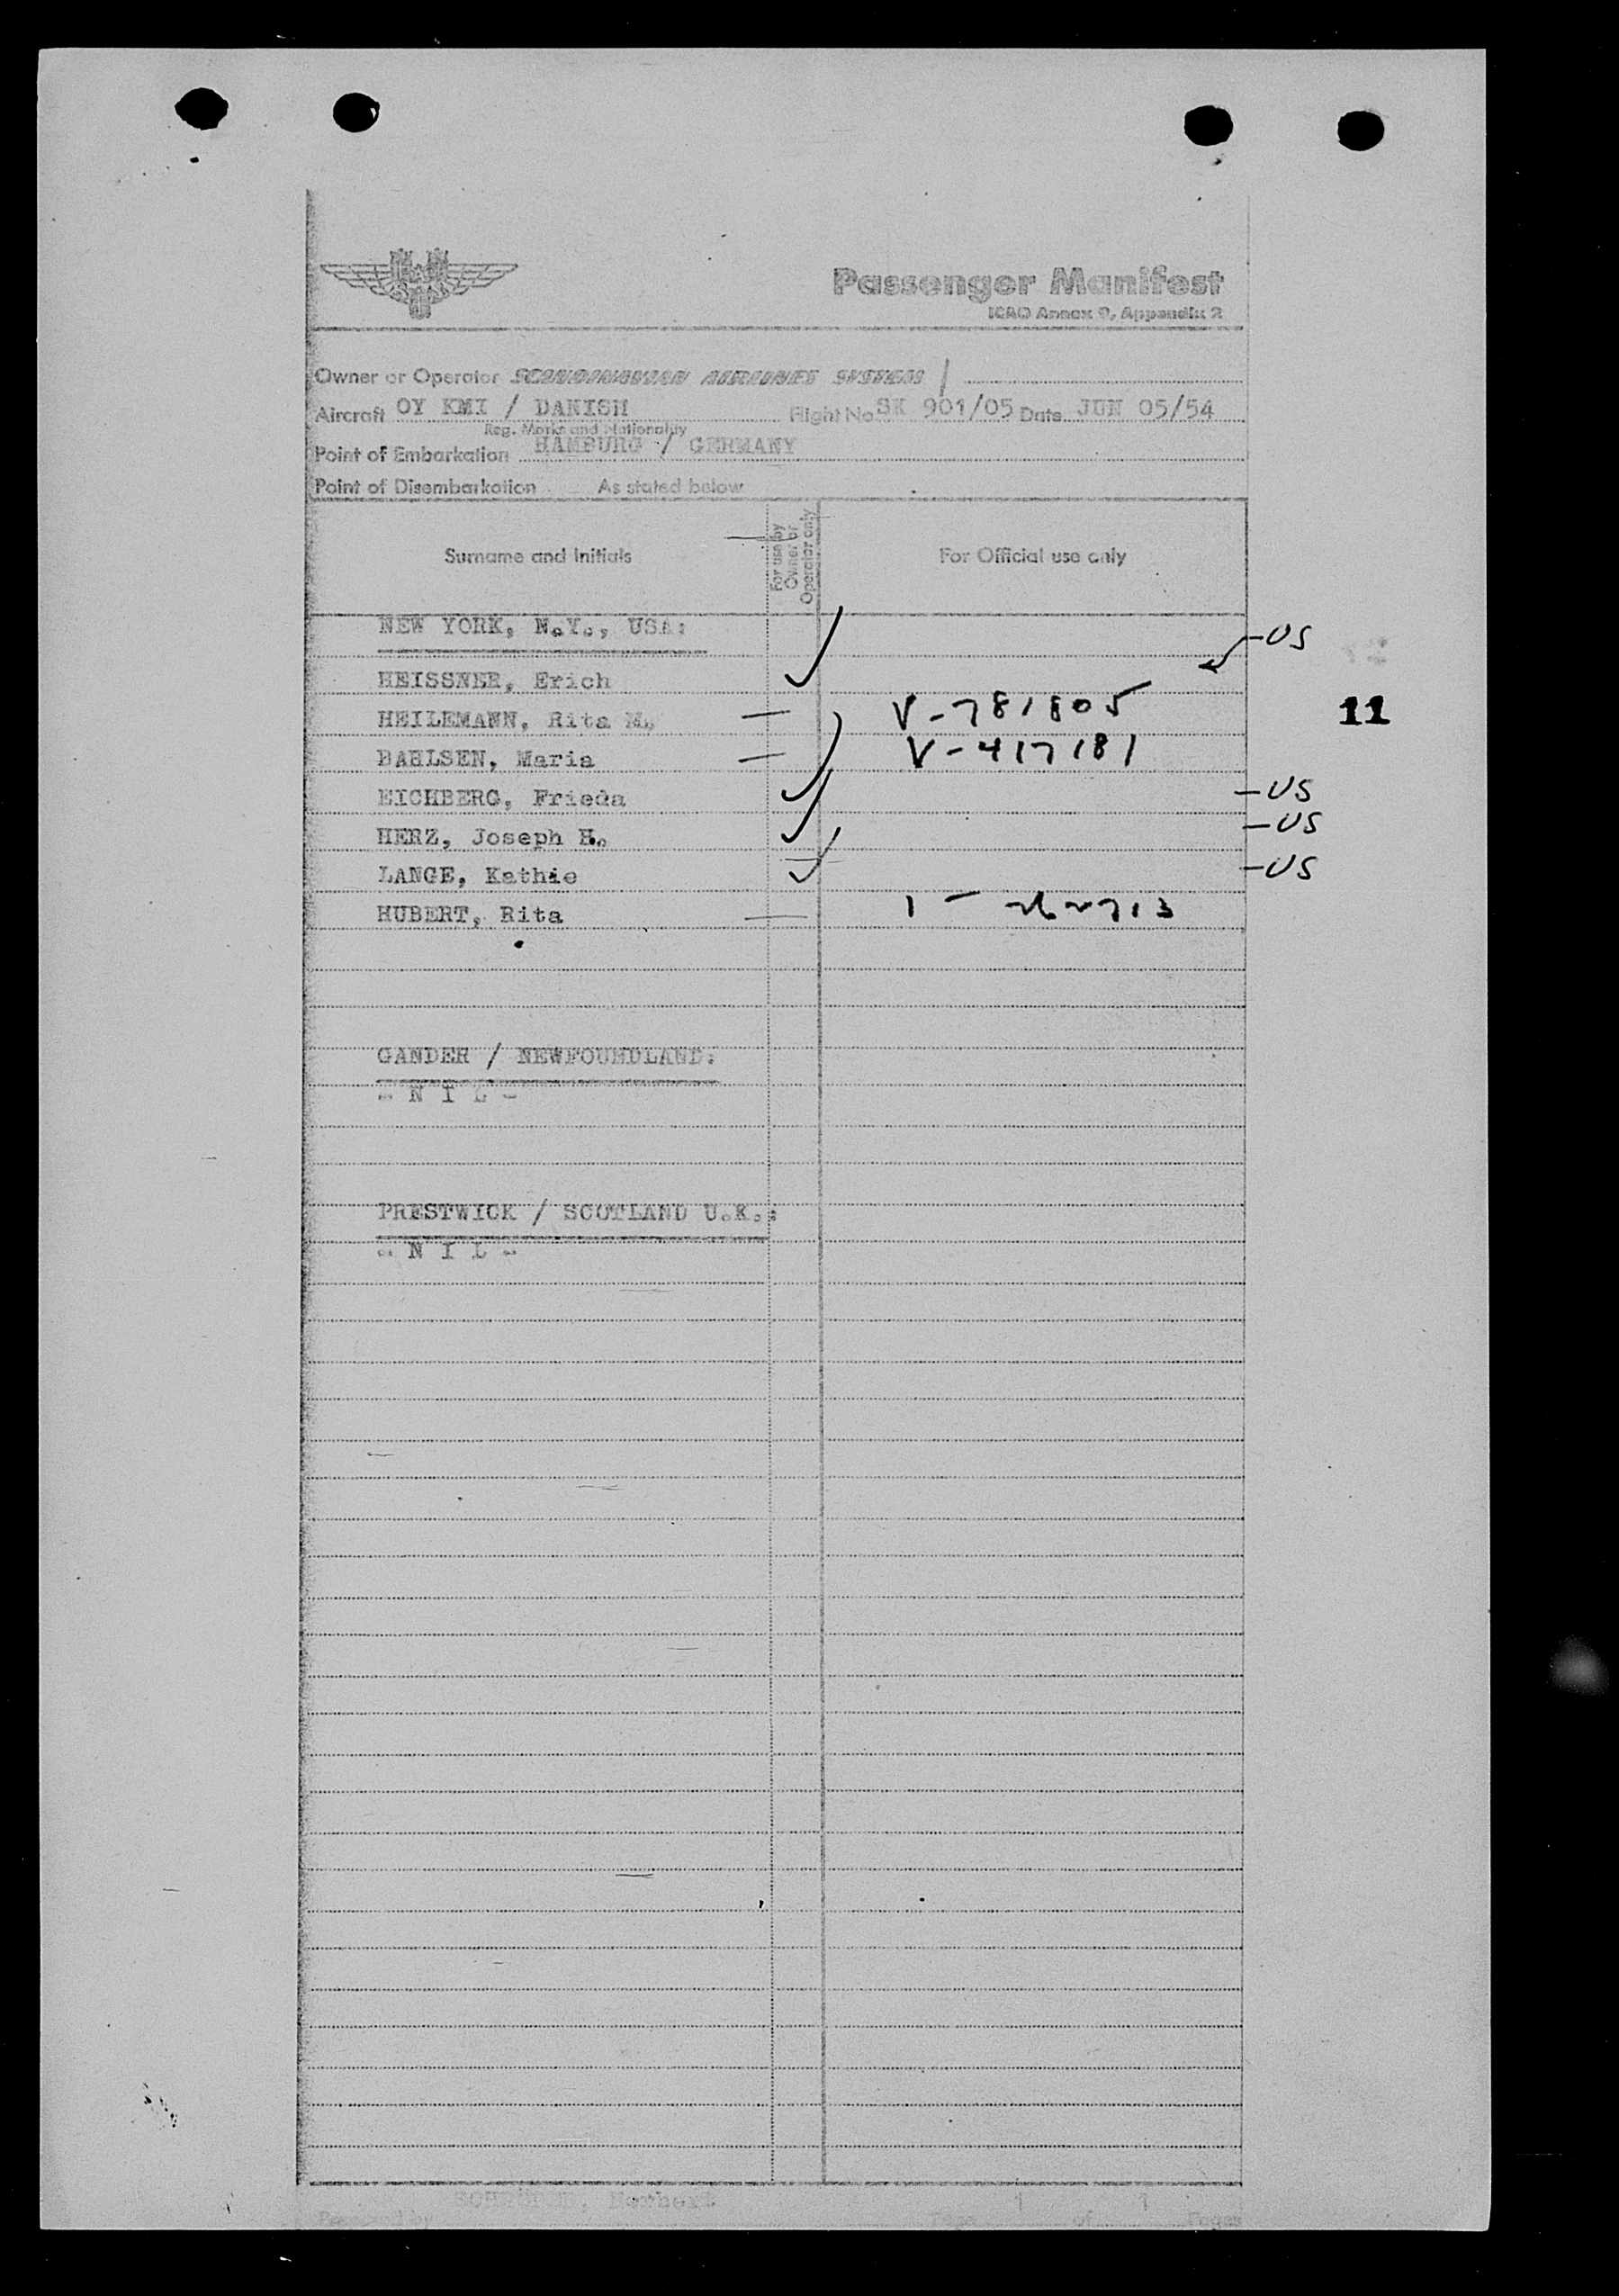 Passenger Manifest
ICAO Annex 9, Appendix 2
Owner or Operator SCANDINAVIAN AIRLINES SYSTEM /
Aircraft OY KMI / DANISH Flight No. SK 901/05 Date JUN 05/54
Reg. Marks and Nationality
Point of Embarkation HAMBURG / GERMANY
Point of Disembarkation As stated below
Surname and Initials For use by Owner or Operator only For Official use only
NEW YORK, N.Y., USA:
-US
HEISSNER, Erich
HEILEMANN, Rita M. — V-781805 11
BAHLSEN, Maria — V-417181
EICHBERG, Frieda -US
HERZ, Joseph H. -US
LANGE, Kathie -US
HUBERT, Rita —
GANDER / NEWFOUNDLAND:
- N I L -
PRESTWICK / SCOTLAND U.K.:
- N I L -
Herbert 1 1
Prepared by Page of Pages